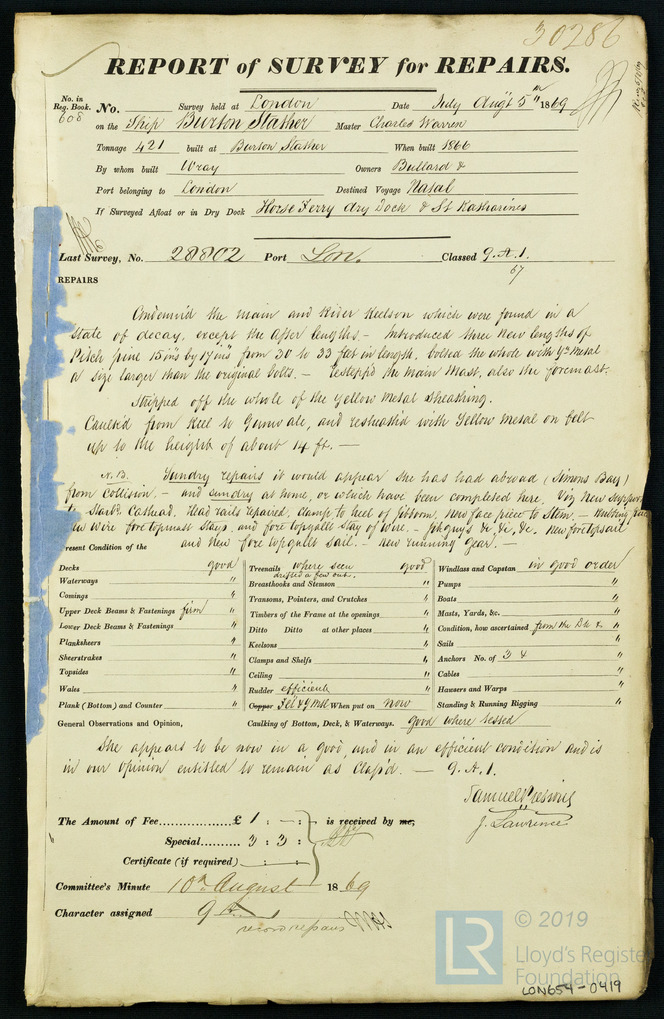 30286
REPORT of SURVEY for REPAIRS.
No. in Reg. Book. No. Survey held at London Date July Augt 5th 1869
608 on the Ship Burton Stather Master Charles Warren
Tonnage 421 built at Burton Stather When built 1866
By whom built Wray Owners Bullard &
Port belonging to London Destined Voyage Natal
If Surveyed Afloat or in Dry Dock Horse Ferry dry Dock & St Katharines
Last Survey, No. 28802 Port Lon. Classed 9.A.1.
67
REPAIRS
Condemn'd the main and River Keelson which were found in a
state of decay, except the after lengths. – Introduced three new lengths of
Pitch pine 15 ins by 17 ins from 30 to 33 feet in length, bolted the whole with Y. Metal
a size larger than the original bolts. – Restepp'd the Main Mast, also the foremast.
Stripped off the whole of the Yellow Metal Sheathing.
Caulk'd from Keel to Gunwale, and resheath'd with Yellow Metal on felt
up to the height of about 14 ft. –
N.B. Sundry repairs it would appear she has had abroad (Simons Bay)
from collision, – and sundry at home, or which have been completed here. Viz New
Starbd Cathead. Head rails repaired. Clamp to heel of jibboom. New face piece to Stem. –
New Wire fore topmast Stays. and fore topgallt Stay of Wire. – Jib guys &c, &c, &c. New fore topsail
and New fore topgallt Sail. – New running Gear. –
Present Condition of the
Decks good Treenails where seen good Windlass and Capstan in good order
drifted a few out.
Waterways " Breasthooks and Stemson " Pumps "
Comings " Transoms, Pointers, and Crutches " Boats "
Upper Deck Beams & Fastenings firm " Timbers of the Frame at the openings " Masts, Yards, &c. "
Lower Deck Beams & Fastenings " Ditto Ditto at other places " Condition, how ascertained from the Dk & "
Planksheers " Keelsons " Sails "
Sheerstrakes " Clamps and Shelfs " Anchors No. of 3 & "
Topsides " Ceiling " Cables "
Wales " Rudder efficient " Hausers and Warps "
Plank (Bottom) and Counter " Copper Felt & Y Mtl When put on now Standing & Running Rigging "
General Observations and Opinion, Caulking of Bottom, Deck, & Waterways. good where tested
She appears to be now in a good, and in an efficient condition and is
in our opinion entitled to remain as Class'd. – 9.A.1.
Samuel
J. Lawrence
The Amount of Fee £ 1 : – : is received by me,
Special 3 : 3 :
Certificate (if required) : :
Committee's Minute 10th August 1869
Character assigned 9 A 1
record repairs
LR © 2019
Lloyd's Register
Foundation
LON654-0419